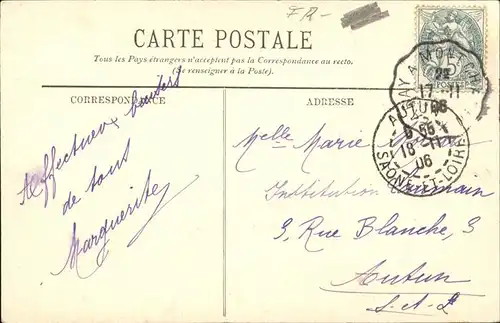 FR-
CARTE POSTALE
Tous les Pays étrangers n'acceptent pas la Correspondance au recto.
(Se renseigner à la Poste.)
CORRESPONDANCE
ADRESSE
Affectueux baisers
de tous
Marguerite
Melle Marie
Institution
3, Rue Blanche, 3
Autun
S.-et-L
22
17-11
06
AUTUN
18-11
06
SAONE-ET-LOIRE